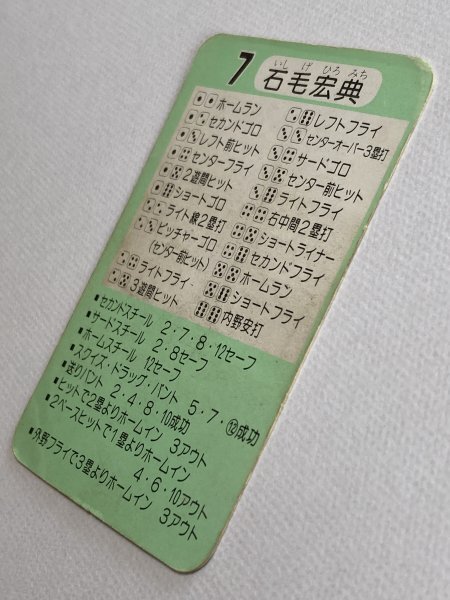 いしげひろみち
7 石毛宏典
ホームラン
セカンドゴロ
レフト前ヒット
センターフライ
2遊間ヒット
ショートゴロ
ライト線2塁打
ピッチャーゴロ
(センター前ヒット)
ライトフライ
3遊間ヒット
レフトフライ
センターオーバー3塁打
サードゴロ
センター前ヒット
ライトフライ
右中間2塁打
ショートライナー
セカンドフライ
ホームラン
ショートフライ
内野安打
▪セカンドスチール 2・7・8・12セーフ
▪サードスチール 2・8セーフ
▪ホームスチール 12セーフ
▪スクイズ・ドラッグ・バント 5・7・⑫成功
▪送りバント 2・4・8・10成功
▪ヒットで2塁よりホームイン 3アウト
▪2ベースヒットで1塁よりホームイン
4・6・10アウト
▪外野フライで3塁よりホームイン 3アウト